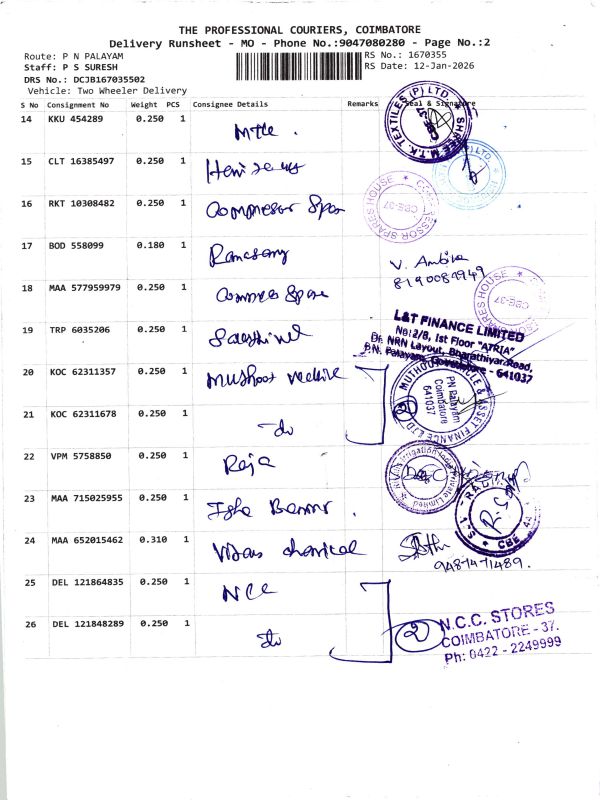 THE PROFESSIONAL COURIERS, COIMBATORE
Delivery Runsheet - MO - Phone No.:9047080280 - Page No.:2
Route: P N PALAYAM
RS No.: 1670355
Staff: P S SURESH
RS Date: 12-Jan-2026
DRS No.: DCJB167035502
Vehicle: Two Wheeler Delivery
S No Consignment No Weight PCS Consignee Details Remarks Seal & Signature
14 KKU 454289 0.250 1
SHREE M.T.K. TEXTILES (P) LTD.
15 CLT 16385497 0.250 1
16 RKT 10308482 0.250 1 Compresor Spar
COMPRESSOR SPARES HOUSE
CBE-37
17 BOD 558099 0.180 1
V. Ambika
8190081949
18 MAA 577959979 0.250 1 Compres Spare
SPARES HOUSE
CBE-37
19 TRP 6035206 0.250 1
L&T FINANCE LIMITED
No:2/8, 1st Floor "ATRIA"
Dr. NRN Layout, Bharathiyar Road,
P.N. Palayam, Coimbatore - 641037
20 KOC 62311357 0.250 1 Muthoot Vechile
MUTHOOT VEHICLE & ASSET FINANCE LTD
PN Palayam
Coimbatore
641037
2
21 KOC 62311678 0.250 1 -do
22 VPM 5758850 0.250 1 Raja
Irrigation India Private Limited
23 MAA 715025955 0.250 1
24 MAA 652015462 0.310 1 chemical
9487471489.
25 DEL 121864835 0.250 1 NCC
26 DEL 121848289 0.250 1 do
2
N.C.C. STORES
COIMBATORE - 37.
Ph: 0422 - 2249999